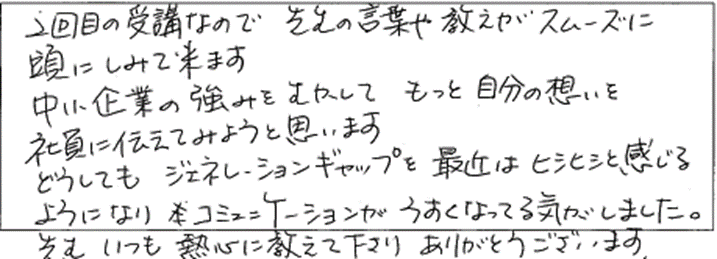 2回目の受講なので 先生の言葉や教えがスムーズに
頭にしみて来ます
中小企業の強みを生かして もっと自分の想いを
社員に伝えてみようと思います
どうしても ジェネレーションギャップを 最近はヒシヒシと感じる
ようになり コミュニケーションが うすくなってる気がしました。
先生 いつも 熱心に教えて下さり ありがとうございます